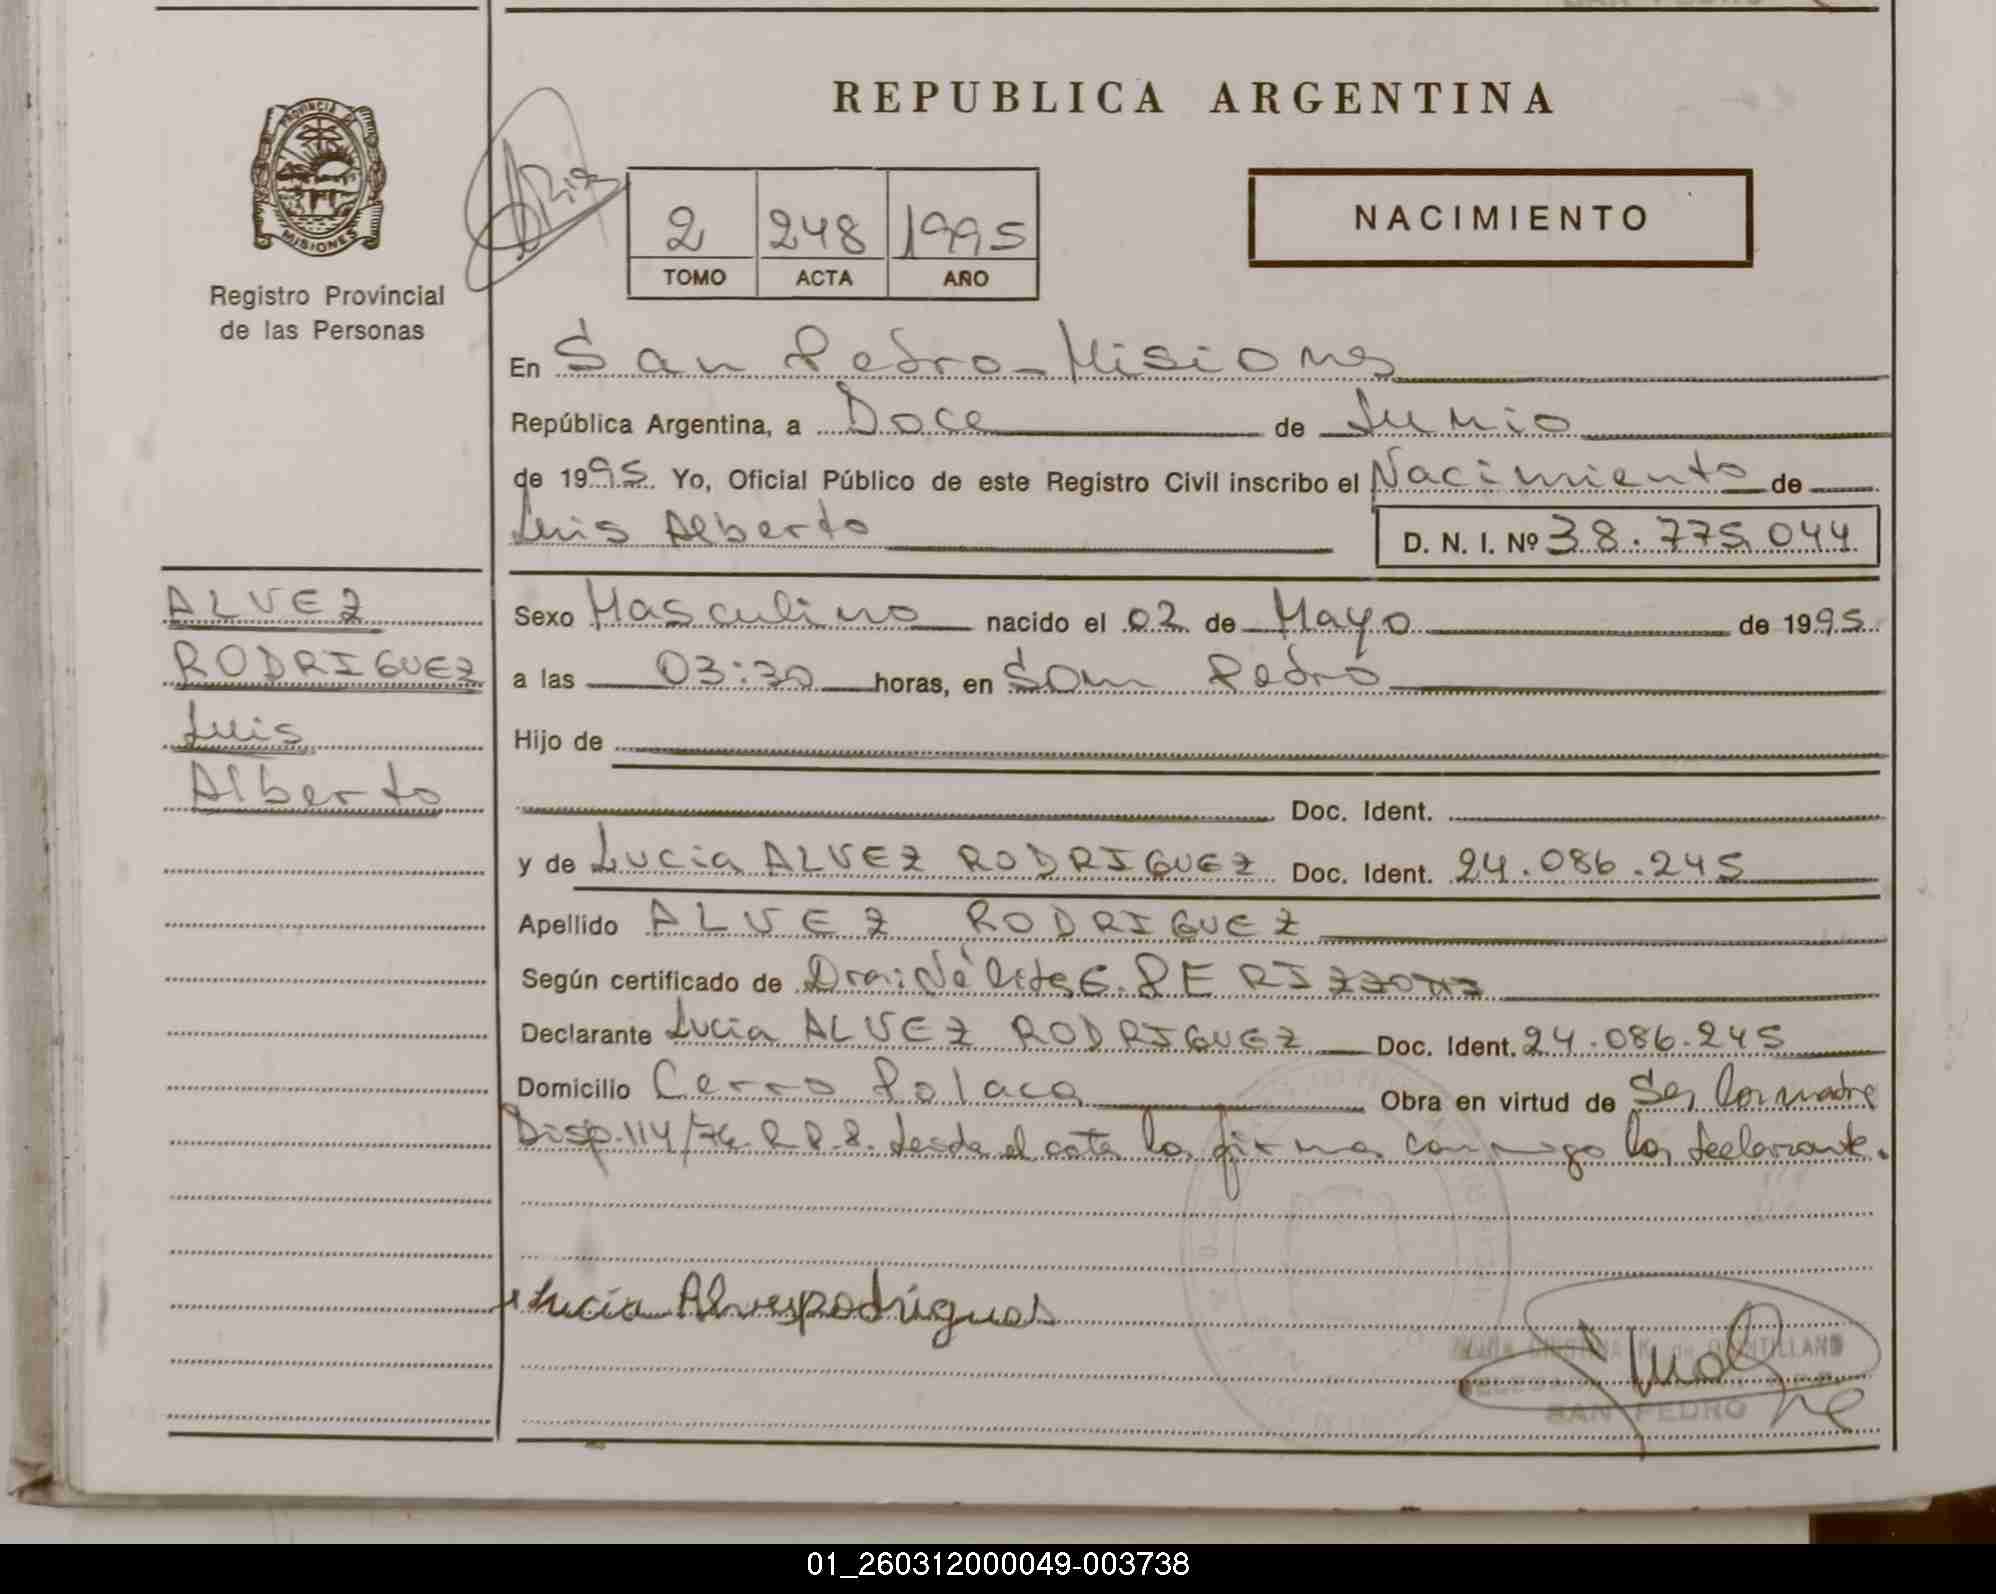 REPUBLICA ARGENTINA
PROVINCIA DE
MISIONES
Registro Provincial
de las Personas
2 248 1995
TOMO ACTA AÑO
NACIMIENTO
En San Pedro - Misiones
República Argentina, a Doce de Junio
de 1995. Yo, Oficial Público de este Registro Civil inscribo el Nacimiento de
Luis Alberto D. N. I. Nº 38.775.044
ALVEZ
RODRIGUEZ
Luis
Alberto
Sexo Masculino nacido el 02 de Mayo de 1995
a las 03:30 horas, en San Pedro
Hijo de
Doc. Ident.
y de Lucia ALVEZ RODRIGUEZ Doc. Ident. 24.086.245
Apellido ALVEZ RODRIGUEZ
Según certificado de Dra: Nélida G.
Declarante Lucia ALVEZ RODRIGUEZ Doc. Ident. 24.086.245
Domicilio Cerro Polaco Obra en virtud de Ser la madre
Disp. 114/74. R.P.P. Leida el acta la firma conmigo la declarante.
Lucia Alvesrodrigues
SAN PEDRO
01_260312000049-003738